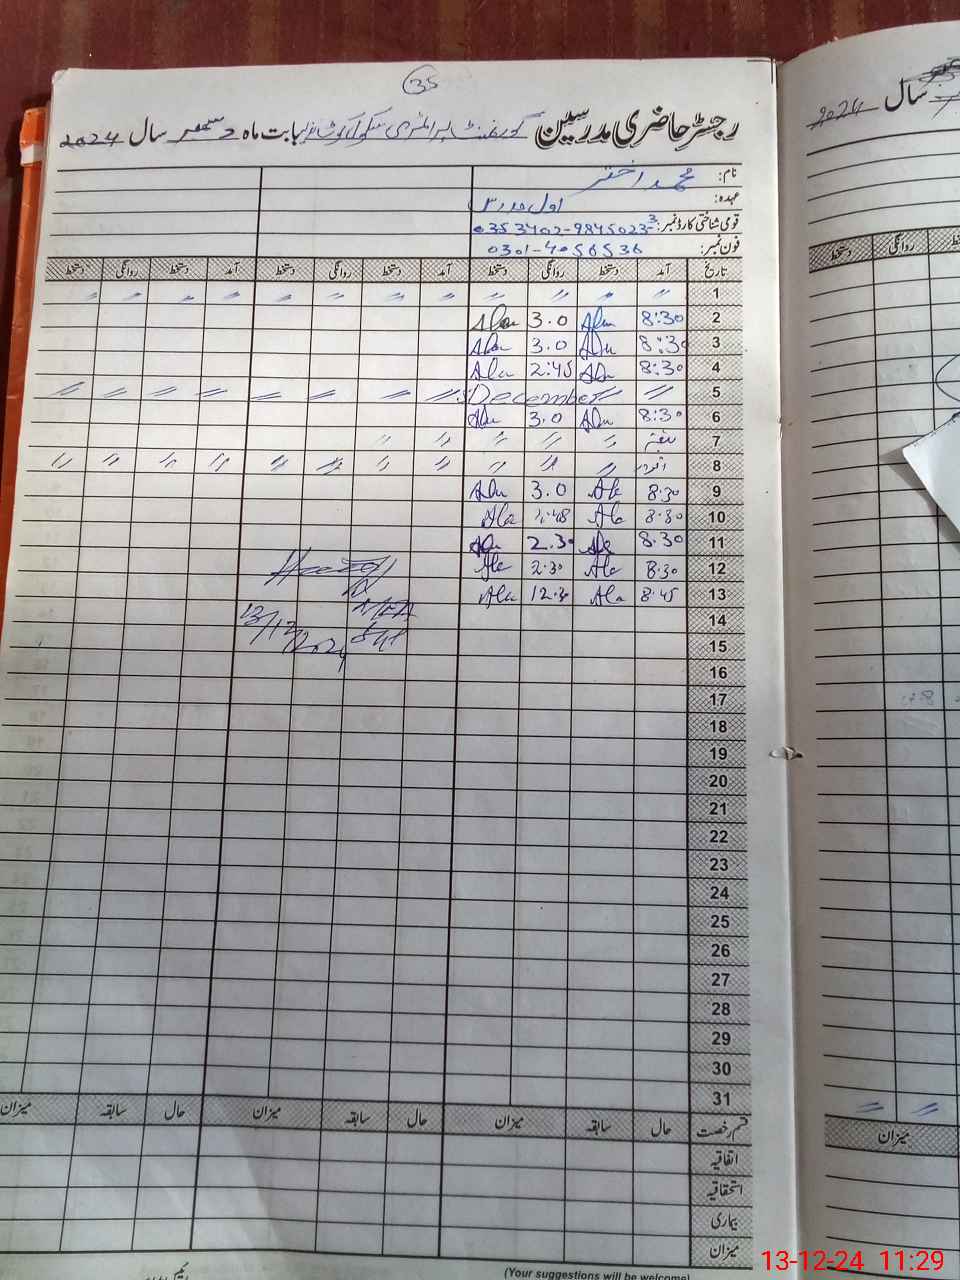 35
رجسٹر حاضری مدرسین گورنمنٹ پرائمری سکول بابت ماہ دسمبر سال 2024
نام: محمد اختر
عہدہ: اول مدرس
قومی شناختی کارڈ نمبر: 0353402-9845023-3
فون نمبر: 0301-4056536
تاریخ آمد دستخط روانگی دستخط آمد دستخط روانگی دستخط آمد دستخط روانگی دستخط
1 〃 〃 〃 〃 〃 〃 〃 〃 〃 〃 〃 〃
2 8:30 3.0
3 8:30 3.0
4 8:30 2:45
5 5 December
6 8:30 3.0
7 ہفتہ 〃 〃 〃 〃 〃
8 اتوار 〃 〃 〃 〃 〃 〃 〃 〃 〃 〃 〃
9 8:30 3.0
10 8:30
11 8:30 2.30
12 8:30 2:30
13 8:45 12:30
14
13/12/2024
15
16
17
18
19
20
21
22
23
24
25
26
27
28
29
30
31
قسم رخصت حال سابقہ میزان حال سابقہ میزان حال سابقہ میزان
اتفاقیہ
استحقاقیہ
بیماری
میزان
(Your suggestions will be welcome)
سال 2024
دستخط روانگی دستخط
میزان
13-12-24 11:29